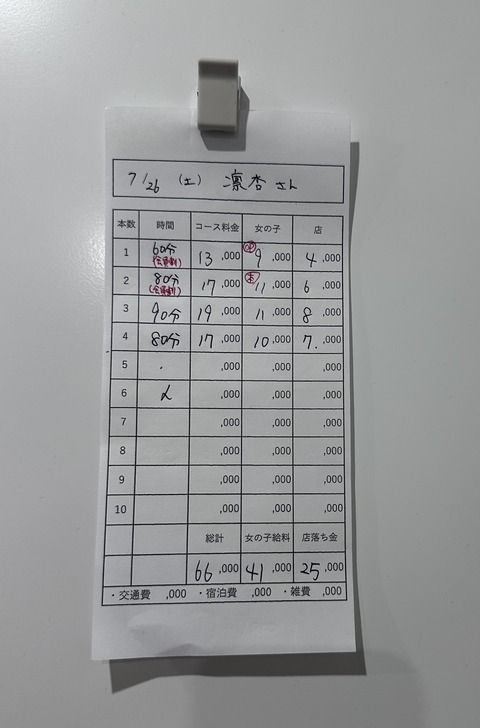 7/26 (土) 凛杏 さん
本数 時間 コース料金 女の子 店
1 60分 (会員割) 13,000 本 9,000 4,000
2 80分 (会員割) 17,000 本 11,000 6,000
3 90分 19,000 11,000 8,000
4 80分 17,000 10,000 7,000
5 ,000 ,000 ,000
6 ,000 ,000 ,000
7 ,000 ,000 ,000
8 ,000 ,000 ,000
9 ,000 ,000 ,000
10 ,000 ,000 ,000
総計 女の子給料 店落ち金
66,000 41,000 25,000
・交通費 ,000 ・宿泊費 ,000 ・雑費 ,000